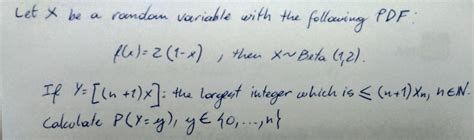 Let X be a random variable with the following PDF:
f(x)=2(1-x) , then X~Beta(1,2).
If Y=[(n+1)X]: the largest integer which is ≤ (n+1)Xn, n∈ℕ.
Calculate P(Y=y), y∈{0,...,n}